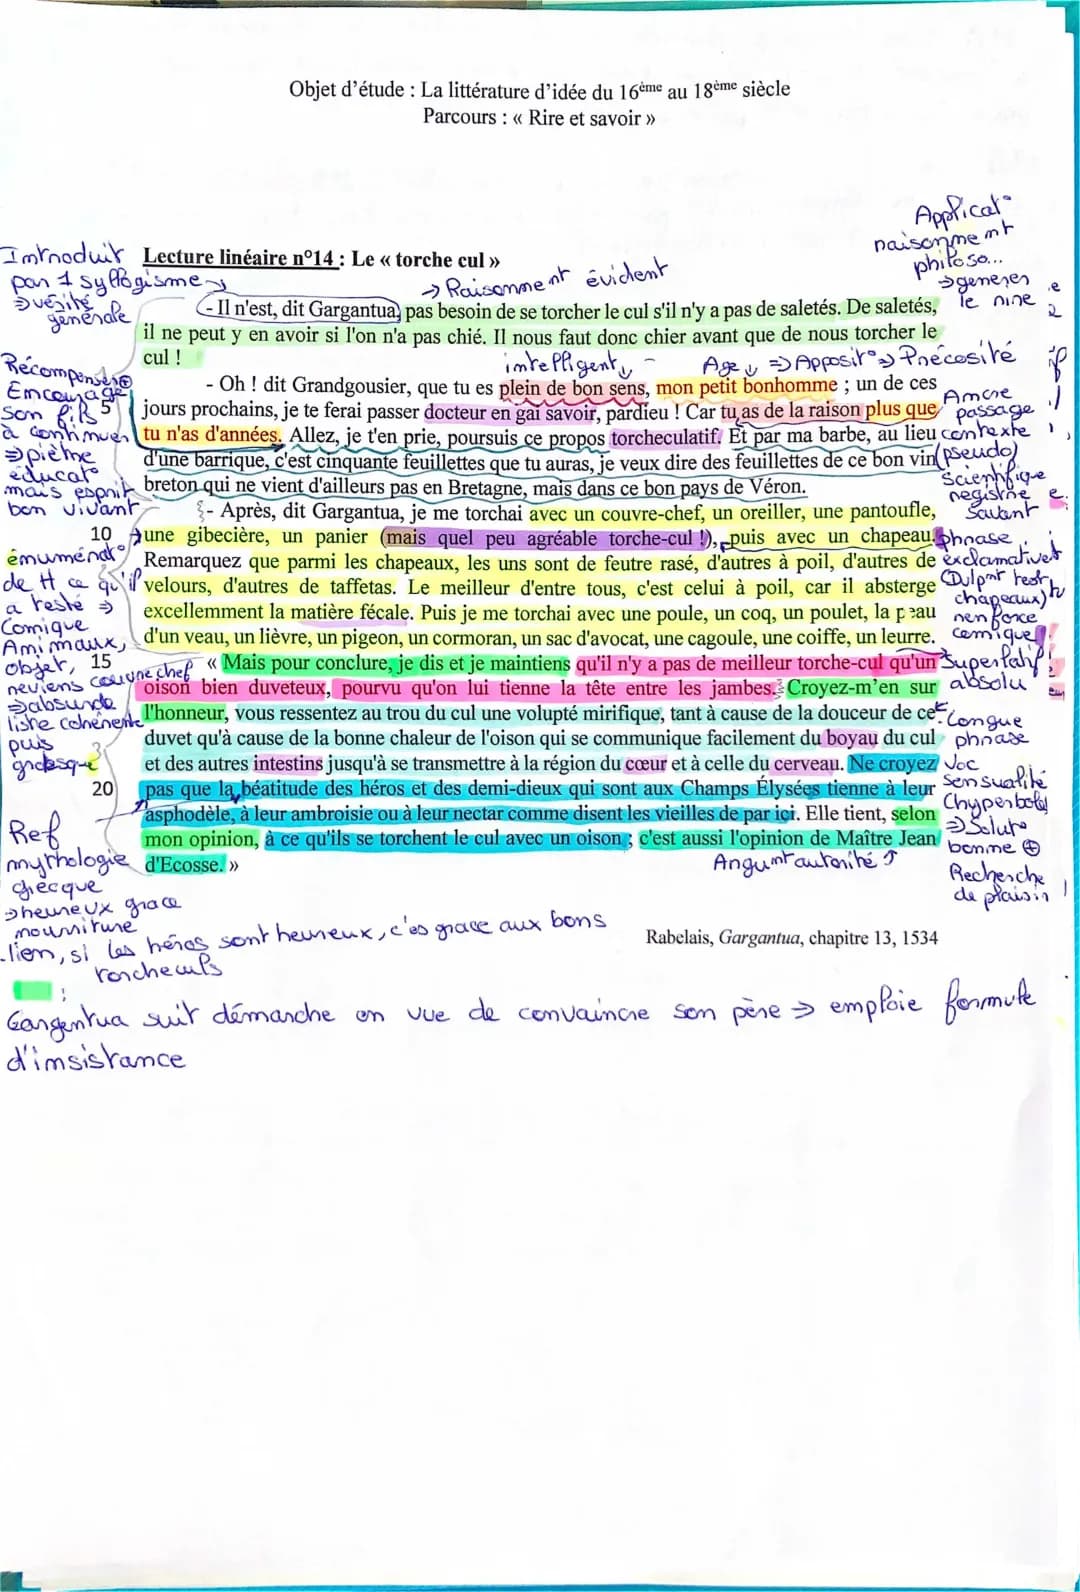 Objet d'étude : La littérature d'idée du 16ème au 18ème siècle
Parcours : « Rire et savoir »
Applicat°
raisonnement
philoso...
⇒ generer
le rire
Introduit
par 1 syllogisme
⇒ vérité
générale
Lecture linéaire n°14 : Le « torche cul »
→ Raisonnement évident
- Il n'est, dit Gargantua, pas besoin de se torcher le cul s'il n'y a pas de saletés. De saletés,
il ne peut y en avoir si l'on n'a pas chié. Il nous faut donc chier avant que de nous torcher le
cul !
intelligent
Age ⇒ Apposit° ⇒ Précosité
Récompense ⊕
Encourage
son fils
à continuer
⇒ piètre
éducat°
mais esprit
bon vivant
- Oh ! dit Grandgousier, que tu es plein de bon sens, mon petit bonhomme ; un de ces
5 jours prochains, je te ferai passer docteur en gai savoir, pardieu ! Car tu as de la raison plus que
tu n'as d'années. Allez, je t'en prie, poursuis ce propos torcheculatif. Et par ma barbe, au lieu
d'une barrique, c'est cinquante feuillettes que tu auras, je veux dire des feuillettes de ce bon vin
breton qui ne vient d'ailleurs pas en Bretagne, mais dans ce bon pays de Véron.
Ancre
passage
contexte
(pseudo)
scientifique
registre
savant
- Après, dit Gargantua, je me torchai avec un couvre-chef, un oreiller, une pantoufle,
10 une gibecière, un panier (mais quel peu agréable torche-cul !), puis avec un chapeau.
Remarquez que parmi les chapeaux, les uns sont de feutre rasé, d'autres à poil, d'autres de
velours, d'autres de taffetas. Le meilleur d'entre tous, c'est celui à poil, car il absterge
excellemment la matière fécale. Puis je me torchai avec une poule, un coq, un poulet, la peau
d'un veau, un lièvre, un pigeon, un cormoran, un sac d'avocat, une cagoule, une coiffe, un leurre.
émumérat°
de tt ce qu'il
a testé ⇒
Comique
Animaux,
objet,
reviens couvre chef
⇒ absurde
liste cohérente
puis
grotesque
phrase
exclamative
chapeaux)
renforce
comique
15 « Mais pour conclure, je dis et je maintiens qu'il n'y a pas de meilleur torche-cul qu'un
oison bien duveteux, pourvu qu'on lui tienne la tête entre les jambes. Croyez-m'en sur
l'honneur, vous ressentez au trou du cul une volupté mirifique, tant à cause de la douceur de ce
duvet qu'à cause de la bonne chaleur de l'oison qui se communique facilement du boyau du cul
et des autres intestins jusqu'à se transmettre à la région du cœur et à celle du cerveau. Ne croyez
20 pas que la béatitude des héros et des demi-dieux qui sont aux Champs Élysées tienne à leur
asphodèle, à leur ambroisie ou à leur nectar comme disent les vieilles de par ici. Elle tient, selon
mon opinion, à ce qu'ils se torchent le cul avec un oison ; c'est aussi l'opinion de Maître Jean
d'Ecosse. »
Superlatif
absolu
Longue
phrase
Voc
sensualité
(hyperbole)
bonne ⊕
Recherche
de plaisir
Argumt autorité
Ref
mythologie
grecque
⇒ heureux grace
nourriture
lien, si les héros sont heureux, c'es grace aux bons
torcheculs
Rabelais, Gargantua, chapitre 13, 1534
:
Gargentua suit démarche en vue de convaincre son père ⇒ emploie formule
d'insistance